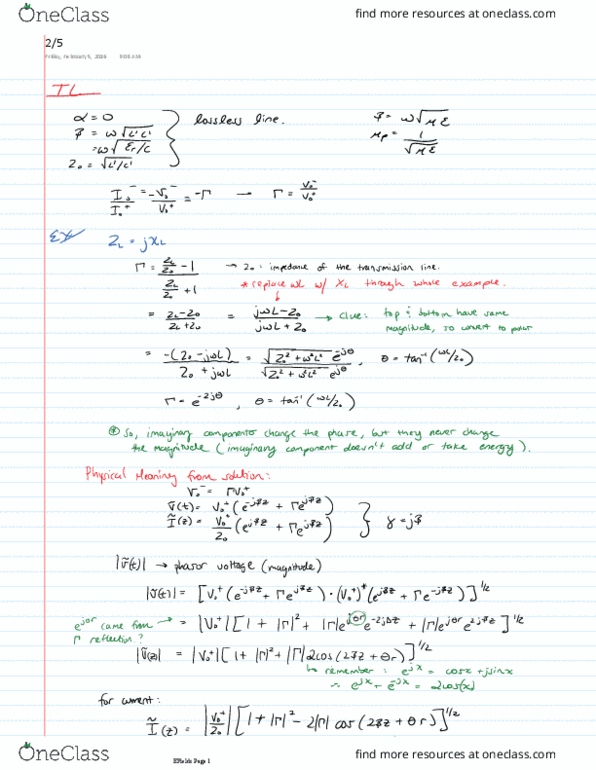 OneClass
find more resources at oneclass.com
2/5
Friday, February 5, 2016 9:00 AM
TL
α = 0
β = ω√L'C'
= ω√εr/c
Z₀ = √L'/C'
} lossless line.
β = ω√με
μp = 1/√με
I₀⁻/I₀⁺ = -V₀⁻/V₀⁺ = -Γ → Γ = V₀⁻/V₀⁺
EX Z_L = jX_L
Γ = (Z_L/Z₀ - 1)/(Z_L/Z₀ + 1) → Z₀: impedance of the transmission line.
* replace ωL w/ X_L through whole example.
= (Z_L - Z₀)/(Z_L + Z₀) = (jωL - Z₀)/(jωL + Z₀) → Clue: top & bottom have same
magnitude, so convert to polar
= -(Z₀ - jωL)/(Z₀ + jωL) = √Z₀² + ω²L² e^-jθ / √Z₀² + ω²L² e^jθ , θ = tan⁻¹(ωL/Z₀)
Γ = e^-2jθ , θ = tan⁻¹(ωL/Z₀)
⊛ So, imaginary components change the phase, but they never change
the magnitude (imaginary component doesn't add or take energy).
Physical Meaning from solution:
V₀⁻ = ΓV₀⁺
Ṽ(t) = V₀⁺(e^-jβz + Γe^jβz)
Ĩ(z) = V₀⁺/Z₀ (e^jβz + Γe^jβz)
} γ = jβ
|Ṽ(t)| → phasor voltage (magnitude)
|Ṽ(t)| = [V₀⁺(e^-jβz + Γe^jβz)·(V₀⁺)*(e^jβz + Γe^-jβz)]^1/2
e^jθr came from
Γ reflection?
→ = |V₀⁺|[1 + |Γ|² + |Γ|e^jθr e^-2jβz + |Γ|e^jθr e^2jβz]^1/2
|Ṽ(z)| = |V₀⁺|[1 + |Γ|² + |Γ|2cos(2βz + θr)]^1/2
↳ remember: e^jx = cosx + jsinx
∴ e^jx + e^-jx = 2cos(x)
for current:
Ĩ(z) = |V₀⁺/Z₀|[1 + |Γ|² - 2|Γ|cos(2βz + θr)]^1/2
OneClass
EFields Page 1
find more resources at oneclass.com